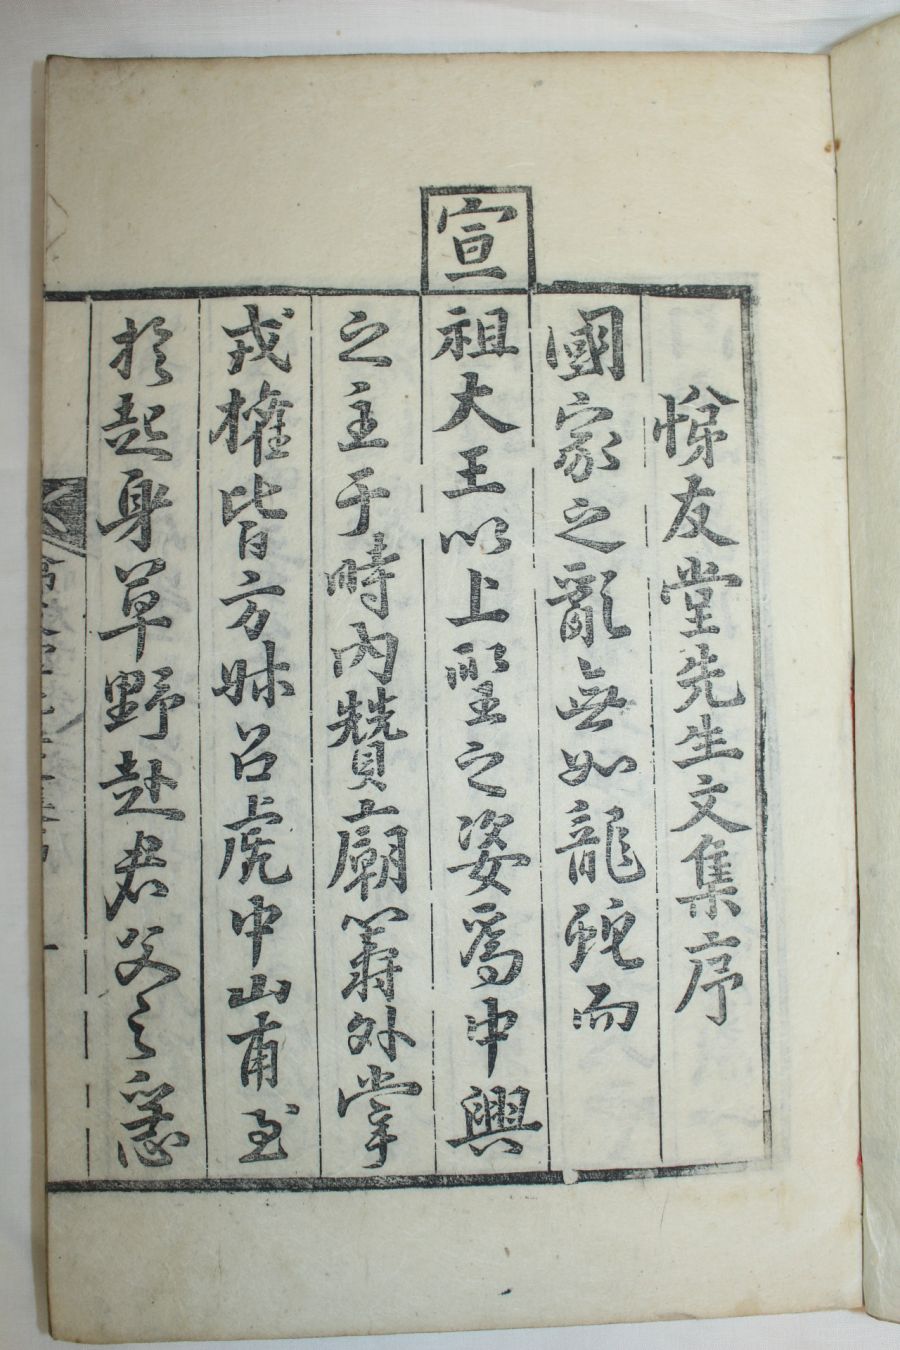 悌友堂先生文集序
國家之亂無如龍蛇而
宣祖大王以上聖之姿爲中興
之主于時內贊廟筭外掌
戎權皆方姝呂虎中山甫至
於起身草野赴君父之急